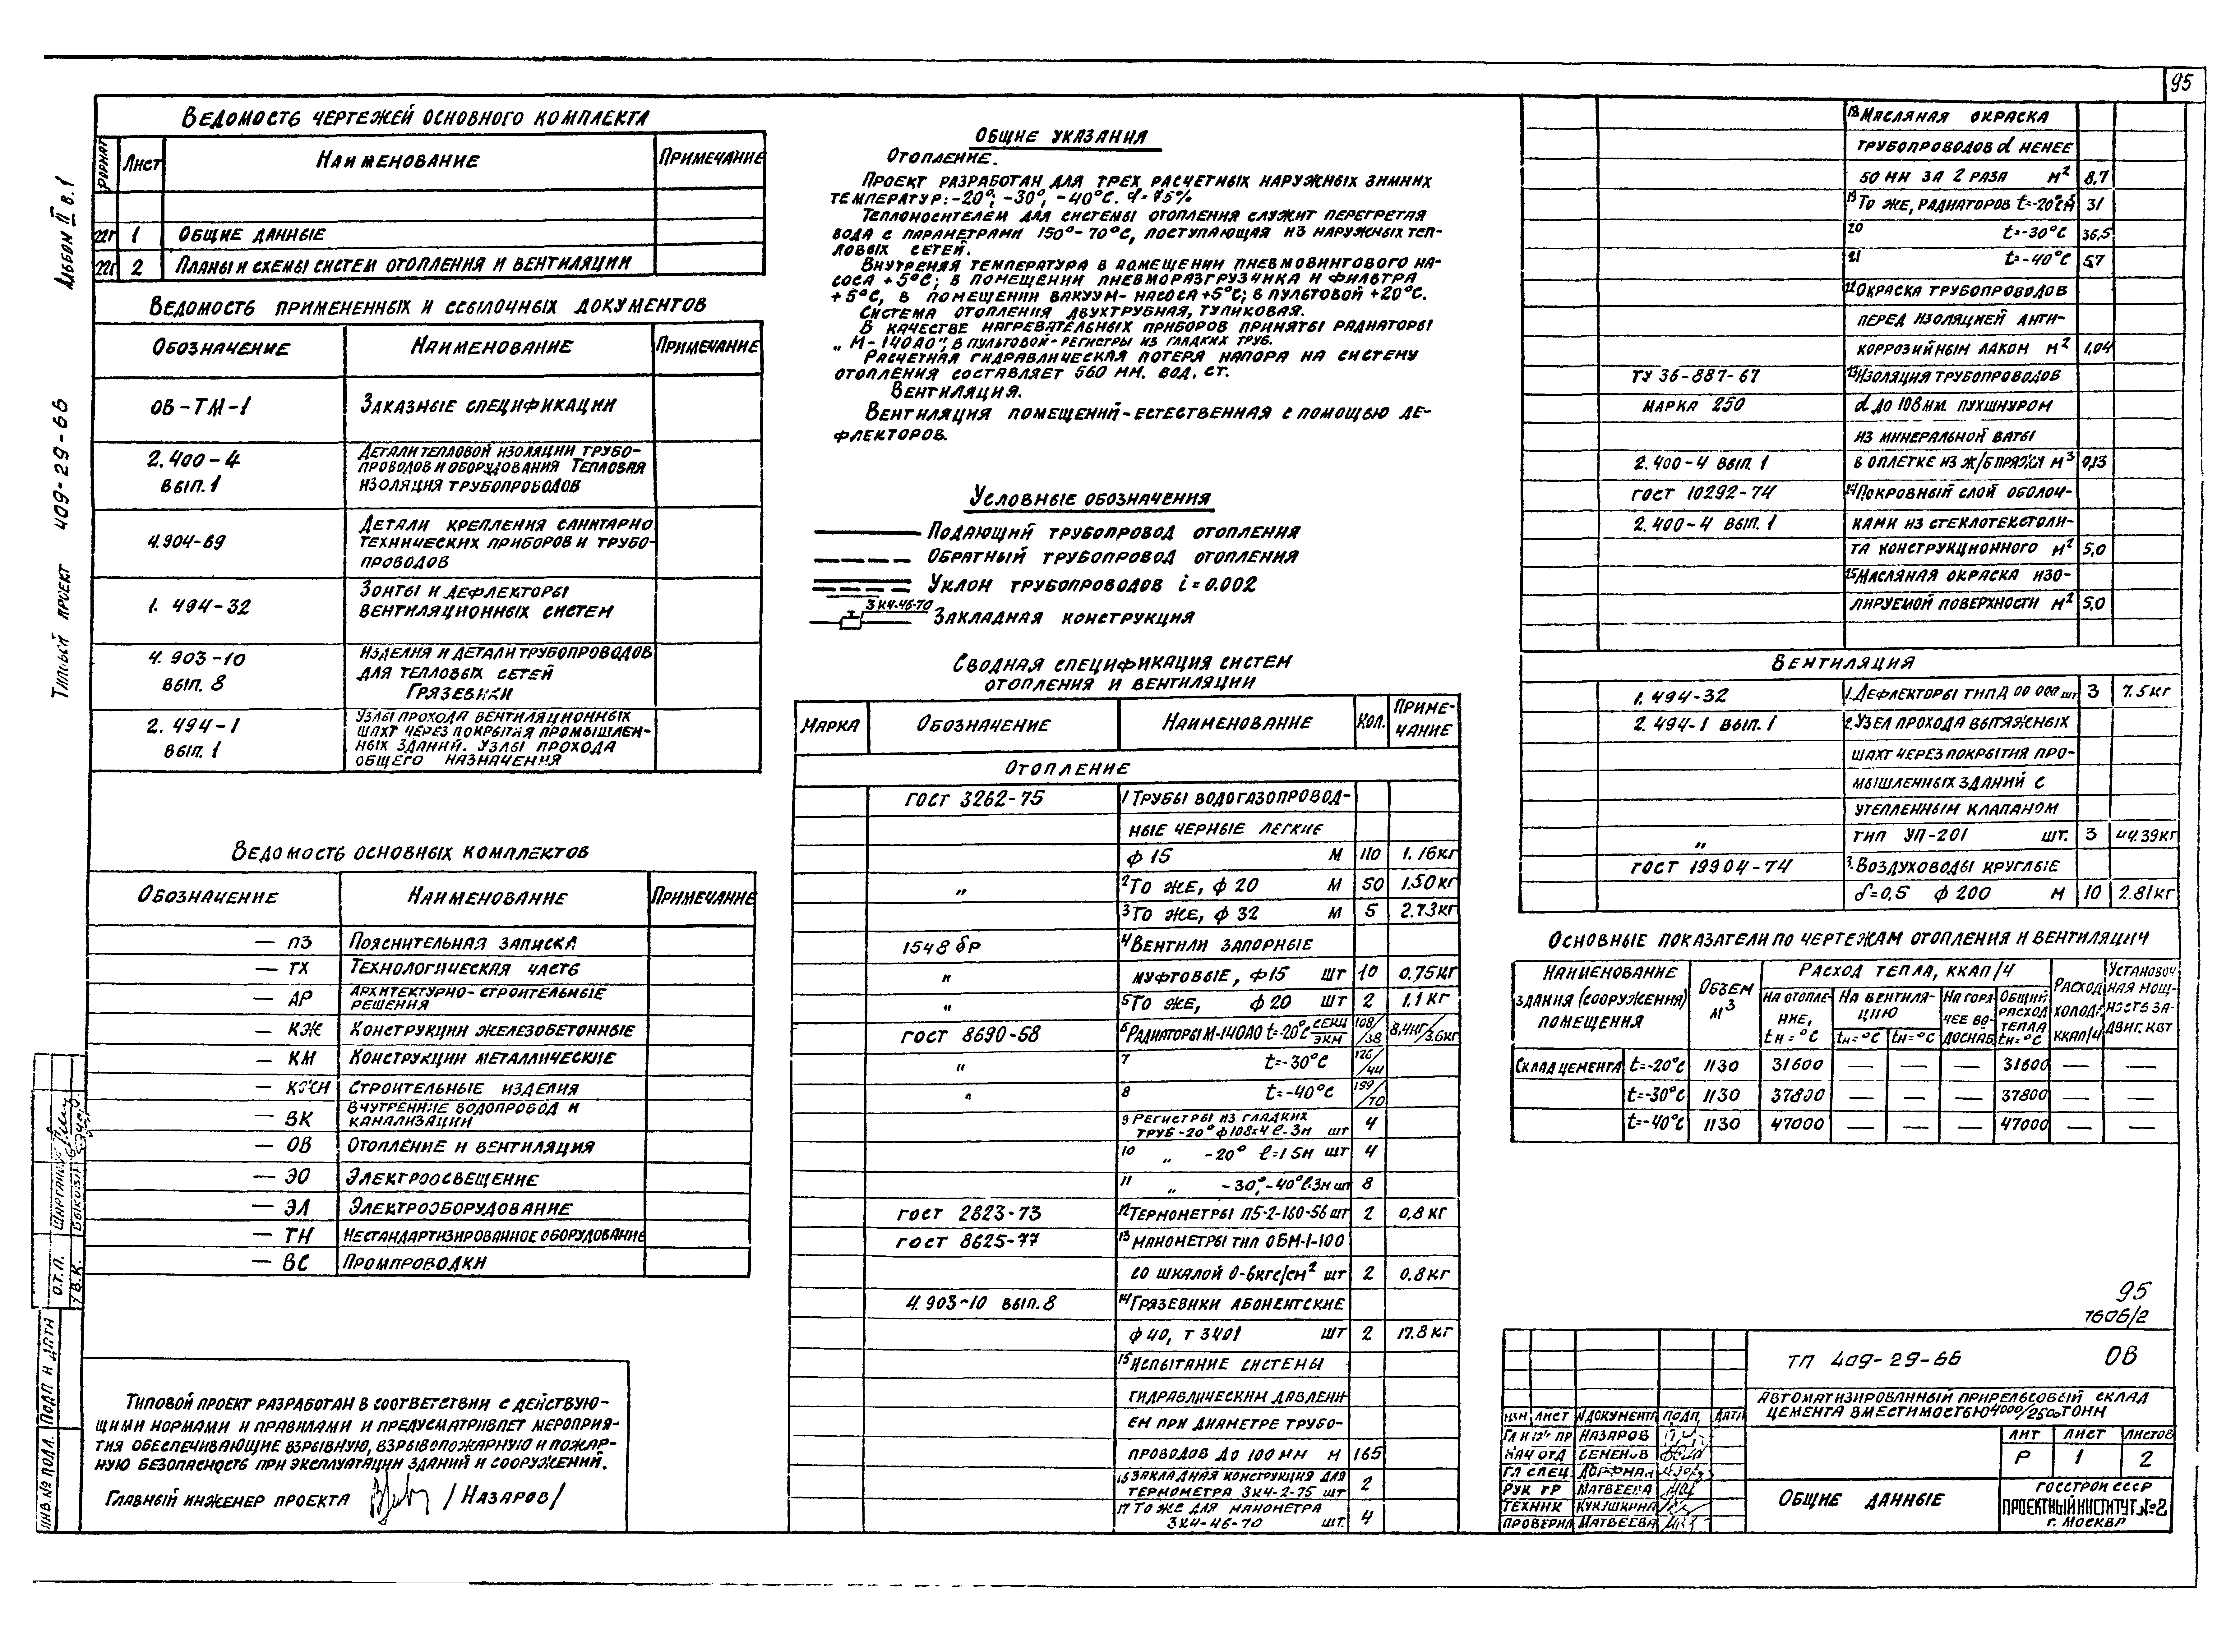 95
Альбом II в.1
Типовой проект 409-29-66
Ведомость чертежей основного комплекта
Формат Лист Наименование Примечание
22г 1 Общие данные
22г 2 Планы и схемы систем отопления и вентиляции
Ведомость примененных и ссылочных документов
Обозначение Наименование Примечание
ОВ-ТМ-1 Заказные спецификации
2.400-4
вып.1
Детали тепловой изоляции трубо-
проводов и оборудования Тепловая
изоляция трубопроводов
4.904-69
Детали крепления санитарно
технических приборов и трубо-
проводов
1.494-32
Зонты и дефлекторы
вентиляционных систем
4.903-10
вып. 8
Изделия и детали трубопроводов
для тепловых сетей
Грязевики
2.494-1
вып. 1
Узлы прохода вентиляционных
шахт через покрытия промышлен-
ных зданий. Узлы прохода
общего назначения
Ведомость основных комплектов
Обозначение Наименование Примечание
— ПЗ Пояснительная записка
— ТХ Технологическая часть
— АР Архитектурно-строительные
решения
— КЖ Конструкции железобетонные
— КМ Конструкции металлические
— КЖИ Строительные изделия
— ВК Внутренние водопровод и
канализации
— ОВ Отопление и вентиляция
— ЭО Электроосвещение
— ЭЛ Электрооборудование
— ТН Нестандартизированное оборудование
— ВС Промпроводки
Типовой проект разработан в соответствии с действую-
щими нормами и правилами и предусматривает мероприя-
тия обеспечивающие взрывную, взрывопожарную и пожар-
ную безопасность при эксплуатации зданий и сооружений.
Главный инженер проекта /Назаров/
О.Т.П.
В.К. Быкова
Инв.№ подл. Подп и дата
Общие указания
Отопление.
Проект разработан для трех расчетных наружных зимних
температур: -20°; -30°, -40°С. d=75%
Теплоносителем для системы отопления служит перегретая
вода с параметрами 150°-70°С, поступающая из наружных теп-
ловых сетей.
Внутреняя температура в помещении пневмовинтового на-
соса +5°С; в помещении пневморазгрузчика и фильтра
+5°С, в помещении вакуум-насоса +5°С; в пультовой +20°С.
Система отопления двухтрубная, тупиковая.
В качестве нагревательных приборов приняты радиаторы
„М-140АО", в пультовой-регистры из гладких труб.
Расчетная гидравлическая потеря напора на систему
отопления составляет 560 мм. вод. ст.
Вентиляция.
Вентиляция помещений-естественная с помощью де-
флекторов.
Условные обозначения
Подающий трубопровод отопления
Обратный трубопровод отопления
Уклон трубопроводов i=0.002
ЗК4-46-70 Закладная конструкция
Сводная спецификация систем
отопления и вентиляции
Марка Обозначение Наименование Кол. Приме-
чание
Отопление
ГОСТ 3262-75 1 Трубы водогазопровод-
ные черные легкие
ф 15 м 110 1.16кг
„ 2 То же, ф 20 м 50 1.50кг
3 То же, ф 32 м 5 2.73кг
15ч8бр 4 Вентили запорные
„ муфтовые, ф15 шт 10 0,75кг
„ 5 То же, ф 20 шт 2 1.1кг
ГОСТ 8690-58 6 Радиаторы М-140АО t=-20°С секц/экм 108/38 8,4кг/3.6кг
„ 7 t=-30°С 126/44
„ 8 t=-40°С 199/70
9 Регистры из гладких
труб -20° ф108х4 ℓ-3м шт 4
10 „ -20° ℓ=1.5м шт 4
11 „ -30°,-40° ℓ.3м шт 8
ГОСТ 2823-73 12 Термометры П5-2-160-56 шт 2 0,8кг
ГОСТ 8625-77 13 Манометры тип ОБМ-1-100
со шкалой 0-6кгс/см² шт 2 0.8кг
4.903-10 вып.8 14 Грязевики абонентские
ф 40, т 34.01 шт 2 17.8кг
15 Испытание системы
гидравлическим давлени-
ем при диаметре трубо-
проводов до 100 мм м 165
16 Закладная конструкция для
термометра ЗК4-2-75 шт 2
17 То же для манометра
ЗК4-46-70 шт. 4
18 Масляная окраска
трубопроводов d менее
50 мм за 2 раза м² 8.7
19 То же, радиаторов t=-20°С м² 31
20 t=-30°С 36,5
21 t=-40°С 57
22 Окраска трубопроводов
перед изоляцией анти-
коррозийным лаком м² 1,04
ТУ 36-887-67 23 Изоляция трубопроводов
марка 250 d до 108мм. пухшнуром
из минеральной ваты
2.400-4 вып. 1 в оплетке из х/б пряжи м³ 0,13
ГОСТ 10292-74 24 Покровный слой оболоч-
2.400-4 вып. 1 ками из стеклотекстоли-
та конструкционного м² 5,0
25 Масляная окраска изо-
лируемой поверхности м² 5,0
Вентиляция
1.494-32 1. Дефлекторы тип Д 00 000 шт 3 7.5кг
2.494-1 вып.1 2. Узел прохода вытяжных
шахт через покрытия про-
мышленных зданий с
утепленным клапаном
„ тип УП-201 шт. 3 44.39кг
ГОСТ 19904-74 3. Воздуховоды круглые
δ=0,5 ф 200 м 10 2.81кг
Основные показатели по чертежам отопления и вентиляции
Наименование
здания (сооружения)
помещения
Объем
м³
Расход тепла, ккал/ч
На отопле-
ние,
tн=°С
На вентиля-
цию
tн=°С tн=°С
На горя-
чее во-
доснаб.
Общий
расход
тепла
tн=°С
Расход
холода
ккал/ч
Установоч
ная мощ-
ность эл-
двиг. квт
Склад цемента t=-20°С 1130 31600 — — — 31600 — —
t=-30°С 1130 37800 — — — 37800 — —
t=-40°С 1130 47000 — — — 47000 — —
95
7606/2
ТП 409-29-66 ОВ
Автоматизированный прирельсовый склад
цемента вместимостью 4000/2500 тонн
Изм Лист № документа Подп. Дата
Гл инж пр Назаров
Нач отд Семенов
Гл спец Дорфман
Рук гр Матвеева
Техник Кукушкина
Проверил Матвеева
Лит Лист Листов
Р 1 2
Общие данные
Госстрой СССР
Проектный институт №2
г. Москва